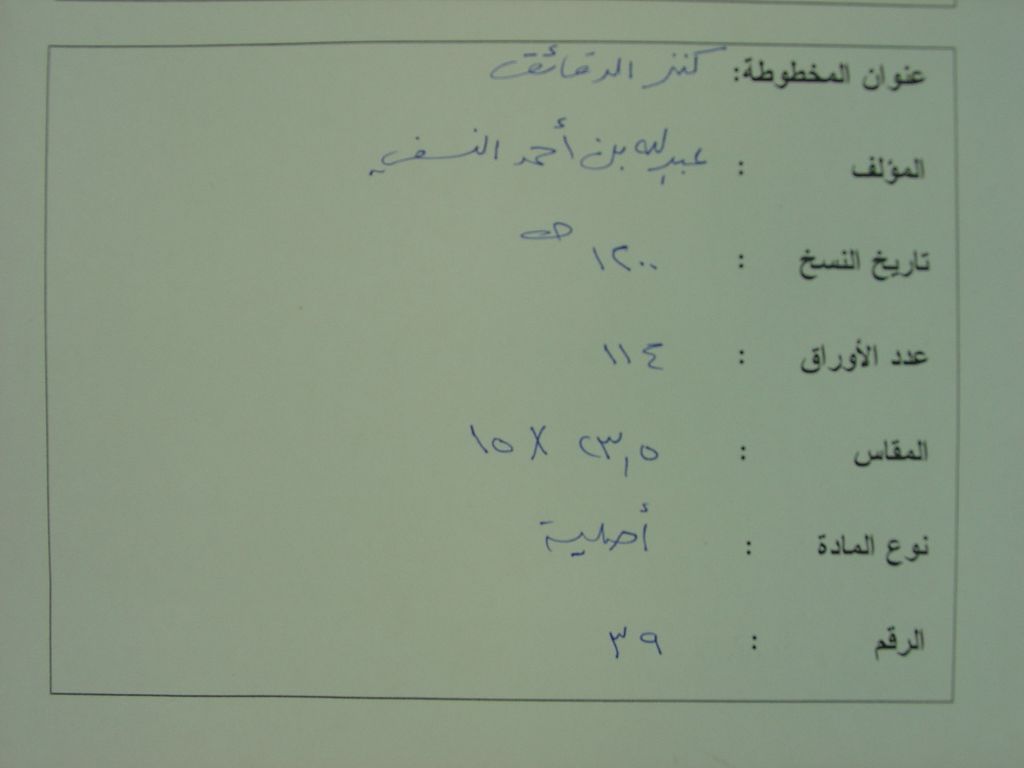 عنوان المخطوطة: كنز الدقائق
المؤلف : عبدالله بن أحمد النسفي
تاريخ النسخ : ١٢٠٠ هـ
عدد الأوراق : ١١٤
المقاس : ٢٣,٥ X ١٥
نوع المادة : أصلية
الرقم : ٣٩